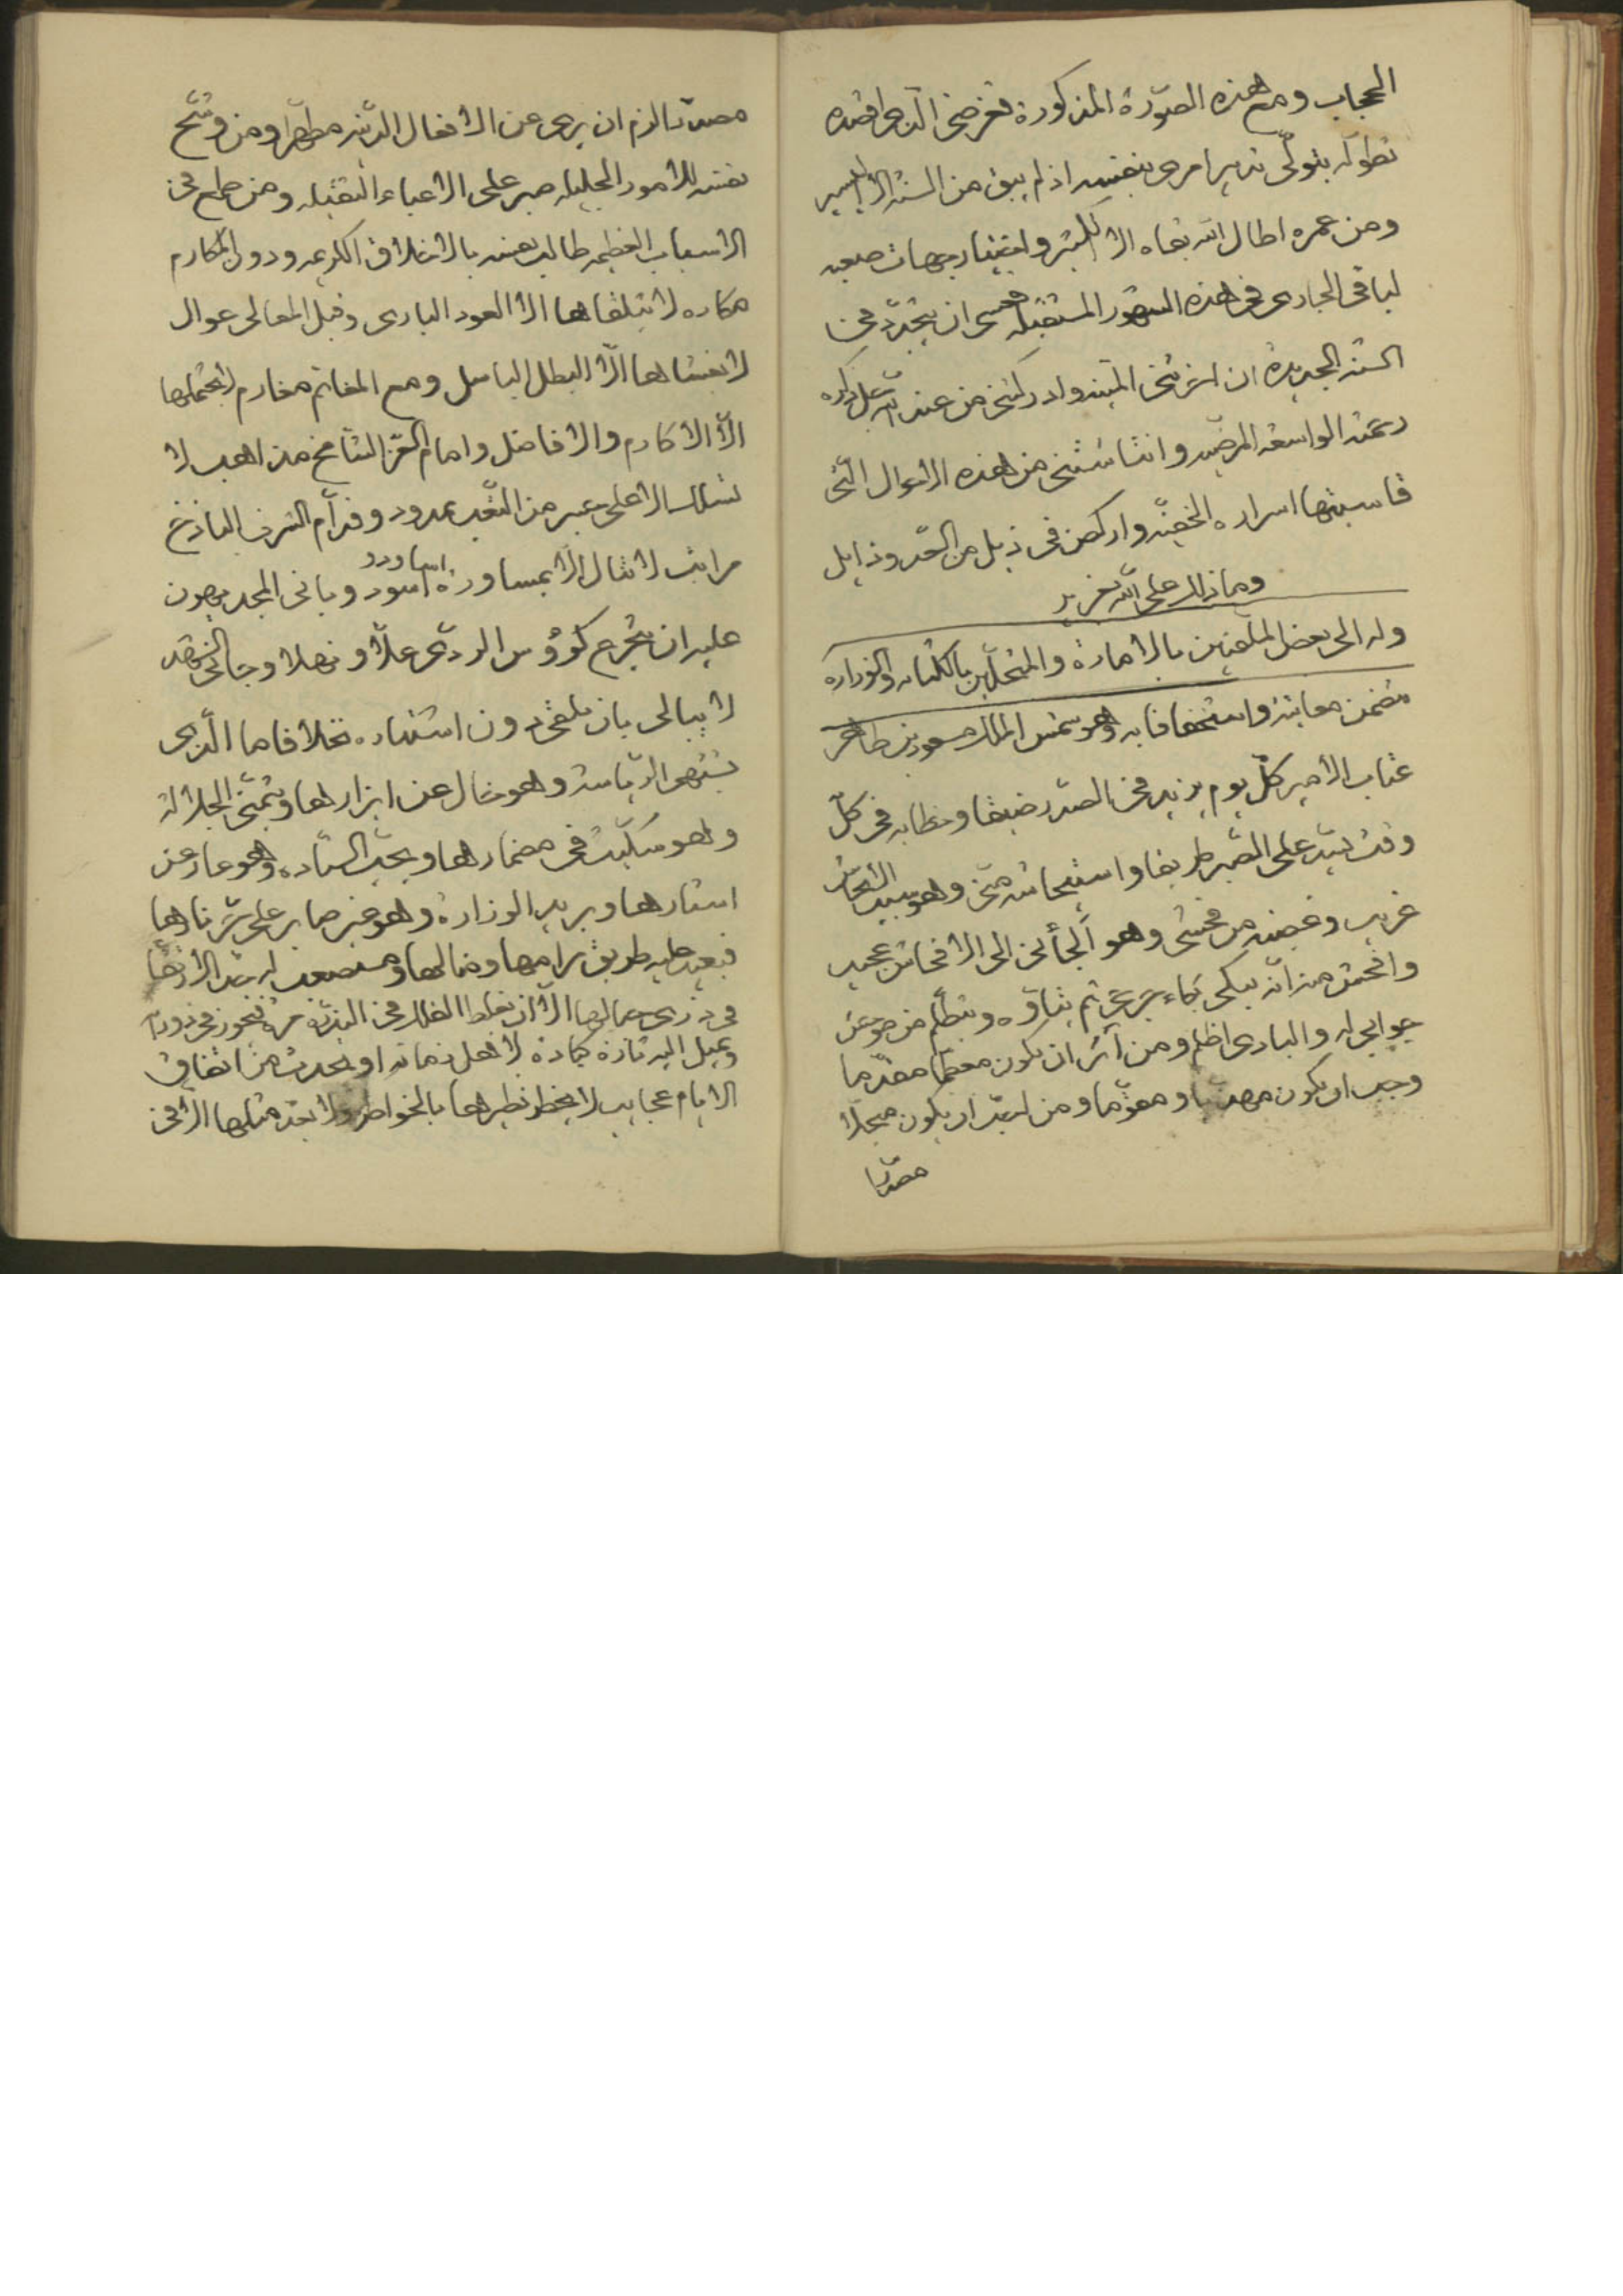 الحجاب ومع هذه الصّورة المذكورة تغرضى الّذى اقصده
تطوله بتولّى تدبير امرى بنفسه اذ لم يبق من السنة الّا اليسير
ومن عمره اطال الله بقاه الا الكثير واختيار جهات
لباقى الجارى فى هذه الشهور المستقبله فعسى ان يتجدّد فى
السنة الجديدة ان اخرتنى المنية وادركتنى من عند الله جل ذكره
رحمته الواسعة المرضيه وانتاشتنى من هذه الاحوال الّتى
قاسيتها اسراره الخفيّه واركض فى ذيل من الجّد وذايل
وما ذلك على الله بعزيز
وله الى بعض الملقبين بالامارة والمنتحلين بالكتابه والوزاره
تتضمن معاتبة واستخفافا به وهو شمس الملك مسعود بن طاهر
عتاب الامير كلّ يوم يزيد فى الصّدر ضيقا وخطابه فى كلّ
وقت يسّد على الصّبر طريقا واستيحاشه منّى وهو سبب الايحاش
غريب وغضبه من فحشى وهو ألجأنى الى الافحاش عجيب
وافحش منه انّه يبكى بكاء ثم يتأوه ويتظلّم من موجز
جوابى له والبادى اظلم ومن آثر ان يكون معظّما مقدّما
وجب ان يكون مهذّبا ومقوّما ومن احبّ ان يكون مبجلا
مصدّرا
مصدّرا لزم ان يرى من الافعال الدّنيه مطهّرا ومن وشّح
نفسه للامور الجليله صبر على الاعباء الثقيله ومن طمع فى
الاسباب العظيمه طالب نفسه بالاخلاق الكريمه ودون المكارم
مكاره لا يتلقاها الا العود البارى وقبل المعالى عوال
لا يغشاها الّا البطل الباسل ومع المغانم مغارم لا يحتملها
الّا الاكارم والافاضل وامام العّز الشامخ مذاهب لا
تسلك الا على جسر من التّعب ممدود وقدّام الشرف الباذخ
مراتب لا تنال الّا بمساورة اسود اساود وبانى المجد يهون
عليه ان يتجرع كؤوس الردّى علّا ونهلا وجانى الشهد
لا يبالى بان يلقى دون اشتياره نحلا فاما الّذى
يشتهى الرّياسة وهو خال عن ابزارها ويتمنى الجلالة
وهو سكّيت فى مضمارها ويحبّ السّيادة وهو عار من
استارها ويريد الوزارة وهو غير صابر على شرّ نارها
فبعيد عليه طريق مرامها ومنالها ومستصعب له
فى ذرى جمالها الّا ان يغلط الفلك فى الندرة مرة فيجوز فى دوره
ويميل اليه تارة كعادة لاهل زمانه او يحدث من اتفاق
الايام عجايب لا يخطر نظيرها بالخواطر ولا يعدّ مثلها الّا فى